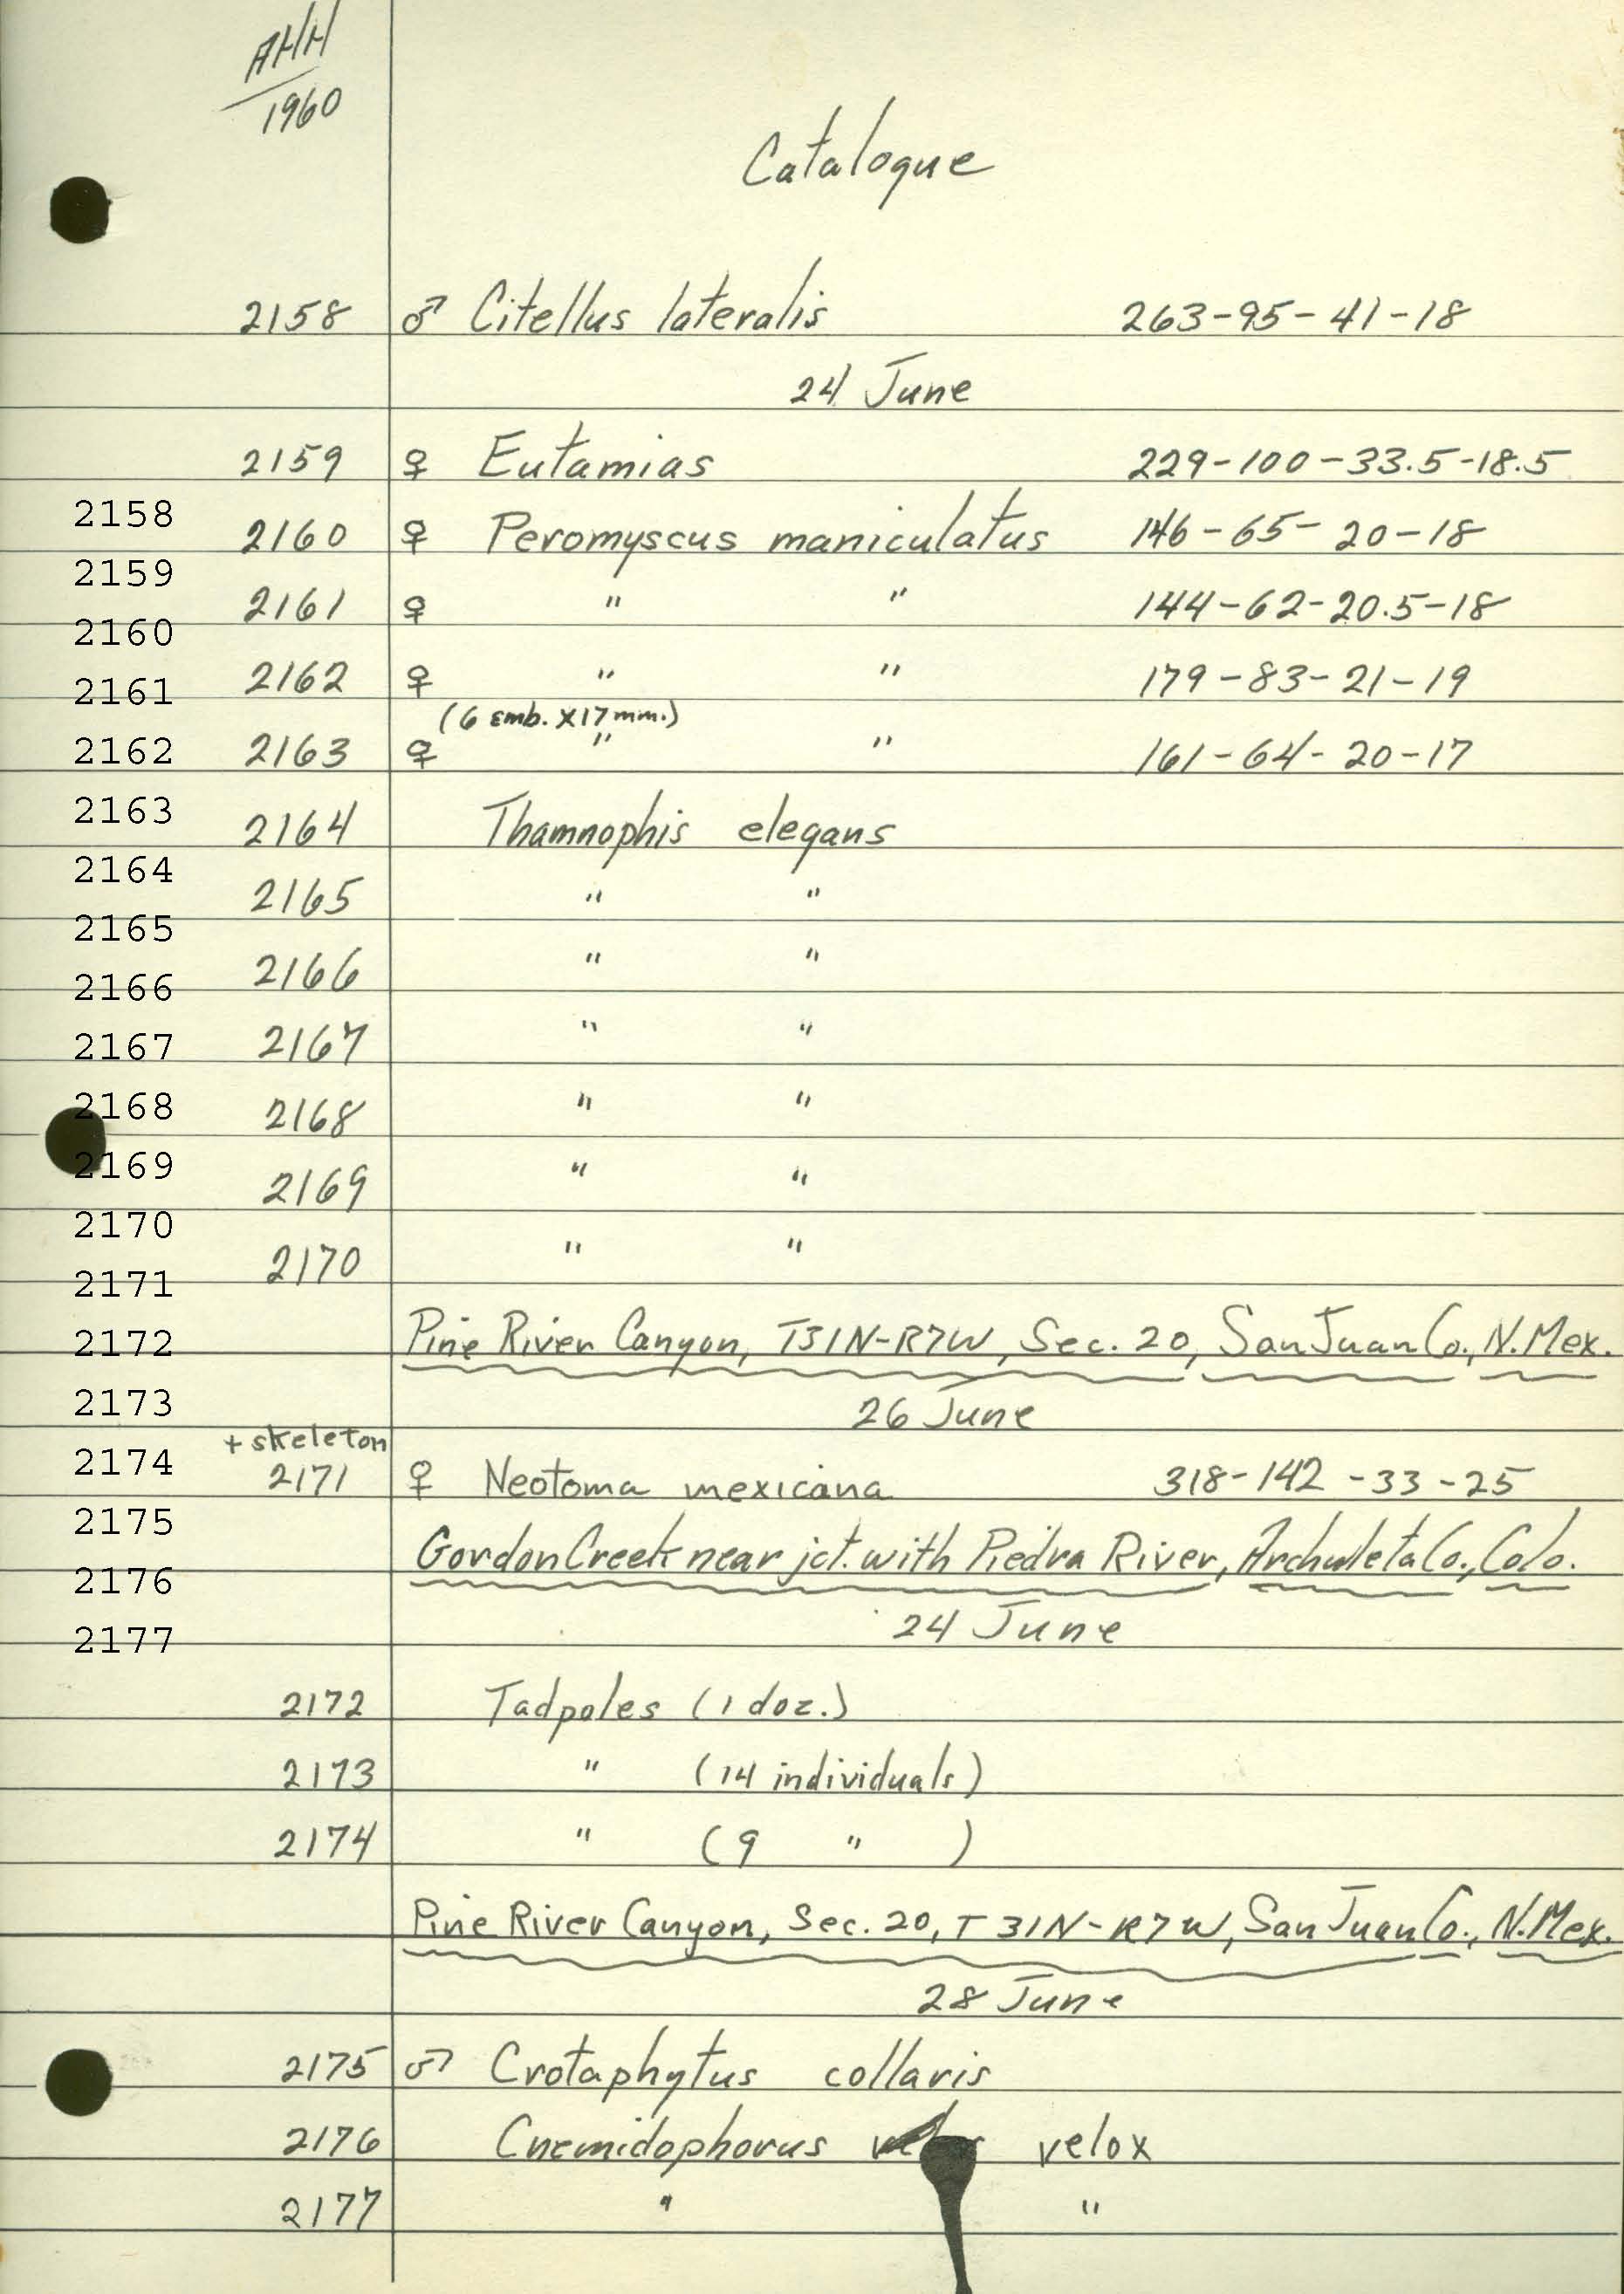 AHH
1960
Catalogue
2158 ♂ Citellus lateralis 263-95-41-18
24 June
2159 ♀ Eutamias 229-100-33.5-18.5
2158
2160 ♀ Peromyscus maniculatus 146-65-20-18
2159
2161 ♀ " " 144-62-20.5-18
2160
2162 ♀ " " 179-83-21-19
2161
(6 emb. X17mm.)
2162 2163 ♀ " " 161-64-20-17
2163
2164 Thamnophis elegans
2164
2165 " "
2165
2166 " "
2166
2167 2167 " "
2168 2168 " "
2169
2169 " "
2170
2170 " "
2171
2172 Pine River Canyon, T31N-R7W, Sec. 20, San Juan Co., N. Mex.
2173 26 June
+ skeleton
2174 2171 ♀ Neotoma mexicana 318-142-33-25
2175
Gordon Creek near jct. with Piedra River, Archuleta Co., Colo.
2176
24 June
2177
2172 Tadpoles (1 doz.)
2173 " (14 individuals)
2174 " (9 " )
Pine River Canyon, Sec. 20, T31N-R7W, San Juan Co., N. Mex.
28 June
2175 ♂ Crotaphytus collaris
2176 Cnemidophorus velox
2177 " "